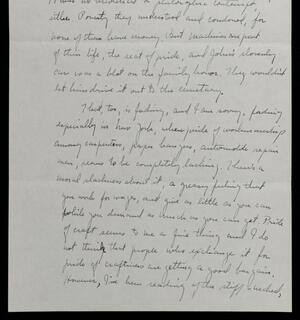 it was no business of a philosopher contempt
either. Poverty they understood and condoned, for
none of them have money. But machines are part
of their life, the seat of pride, and John's slovenly
car was a blot on the family honor. They wouldn't
let him drive it out to the cemetary.
That, too, is fading, and I am sorry. fading
especially in New York, where pride of workmanship
among carpenters, paper hangers, automobile repair
men, seems to be completely lacking. There's a
moral slackness about it, a greasy feeling that
you work for wages, and give as little as you can
while you demand as much as you can get. Pride
of craft seems to me a fine thing and I do
not think that people who exchange it for
pride of craftiness are getting a good bargain.
However, I've been reading of the stiff-necked,